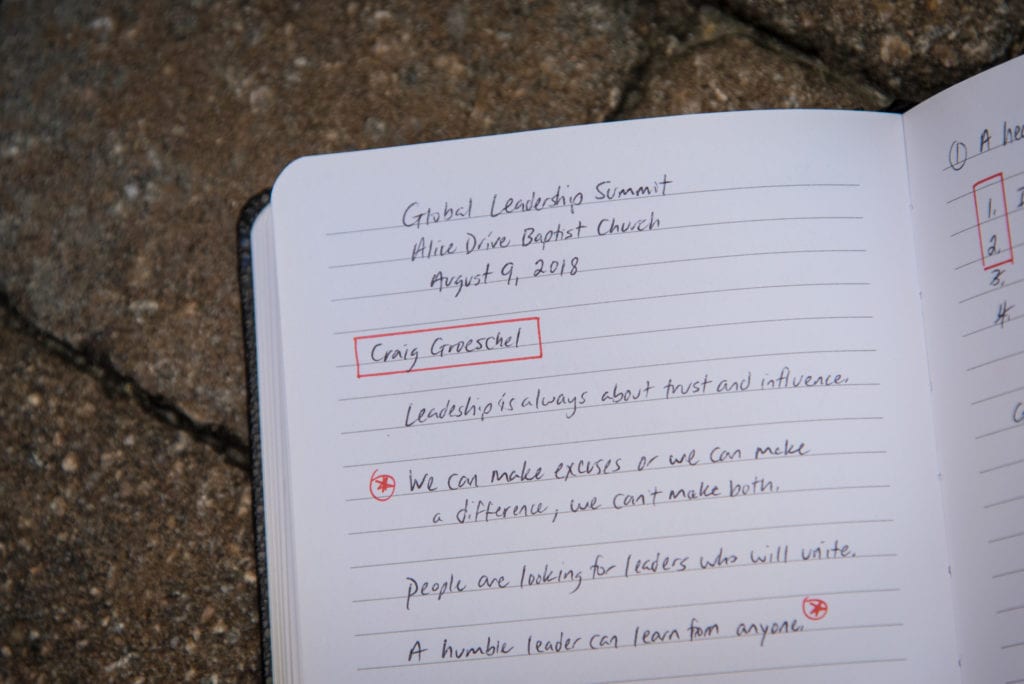 Global Leadership Summit
Alice Drive Baptist Church
August 9, 2018
Craig Groeschel
Leadeship is always about trust and influence.
* We can make excuses or we can make
a difference, we can't make both.
People are looking for leaders who will unite.
A humble leader can learn from anyone. *
① A
1.
2.
3.
4.